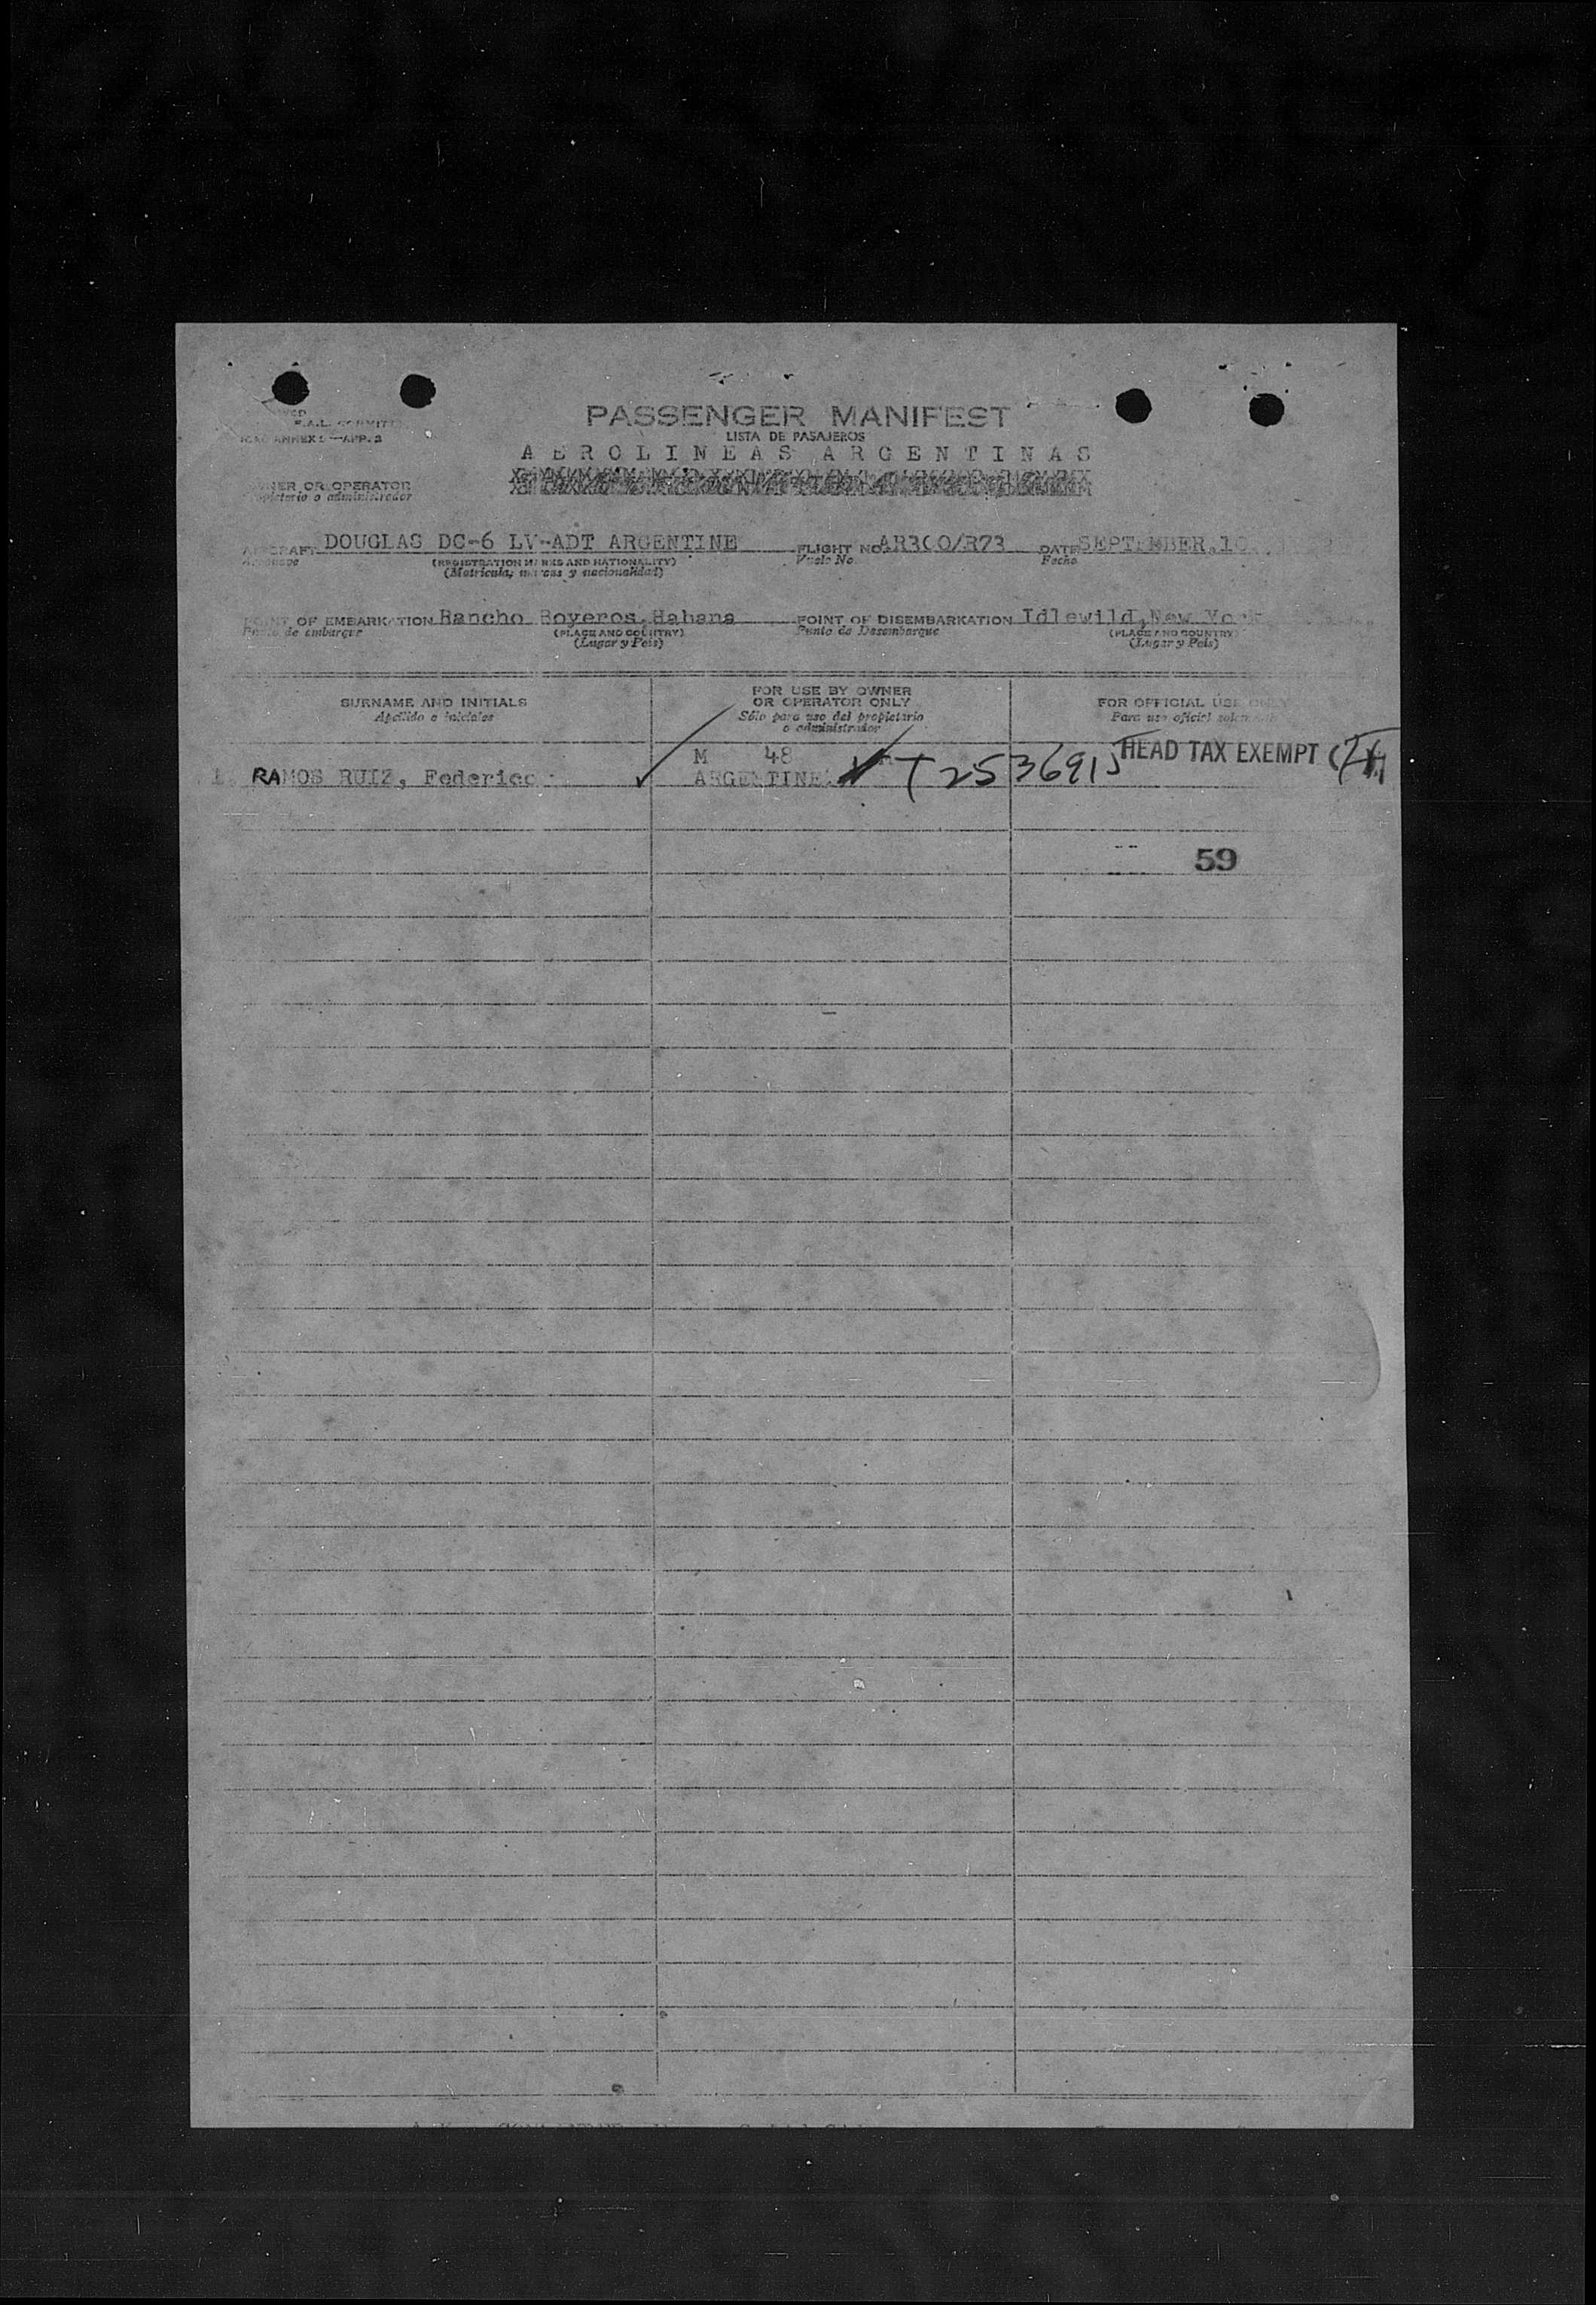 PASSENGER MANIFEST
LISTA DE PASAJEROS
ANNEX 9—APP. 2
AEROLINEAS ARGENTINAS
OWNER OR OPERATOR
Propietario o administrador
AIRCRAFT DOUGLAS DC-6 LV-ADT ARGENTINE FLIGHT NO. AR300/R73 DATE SEPTEMBER, 10
(REGISTRATION MARKS AND NATIONALITY) Vuelo No. Fecha
(Matricula, marcas y nacionalidad)
POINT OF EMBARKATION Rancho Boyeros, Habana POINT OF DISEMBARKATION Idlewild, New York
Punto de embarque (PLACE AND COUNTRY) Punto de Desembarque (PLACE AND COUNTRY)
(Lugar y País) (Lugar y País)
SURNAME AND INITIALS FOR USE BY OWNER OR OPERATOR ONLY FOR OFFICIAL USE ONLY
Apellido e iniciales Sólo para uso del propietario o administrador Para uso oficial
M 48 HEAD TAX EXEMPT
RAMOS RUIZ, Federico ARGENTINE T 2536915
59